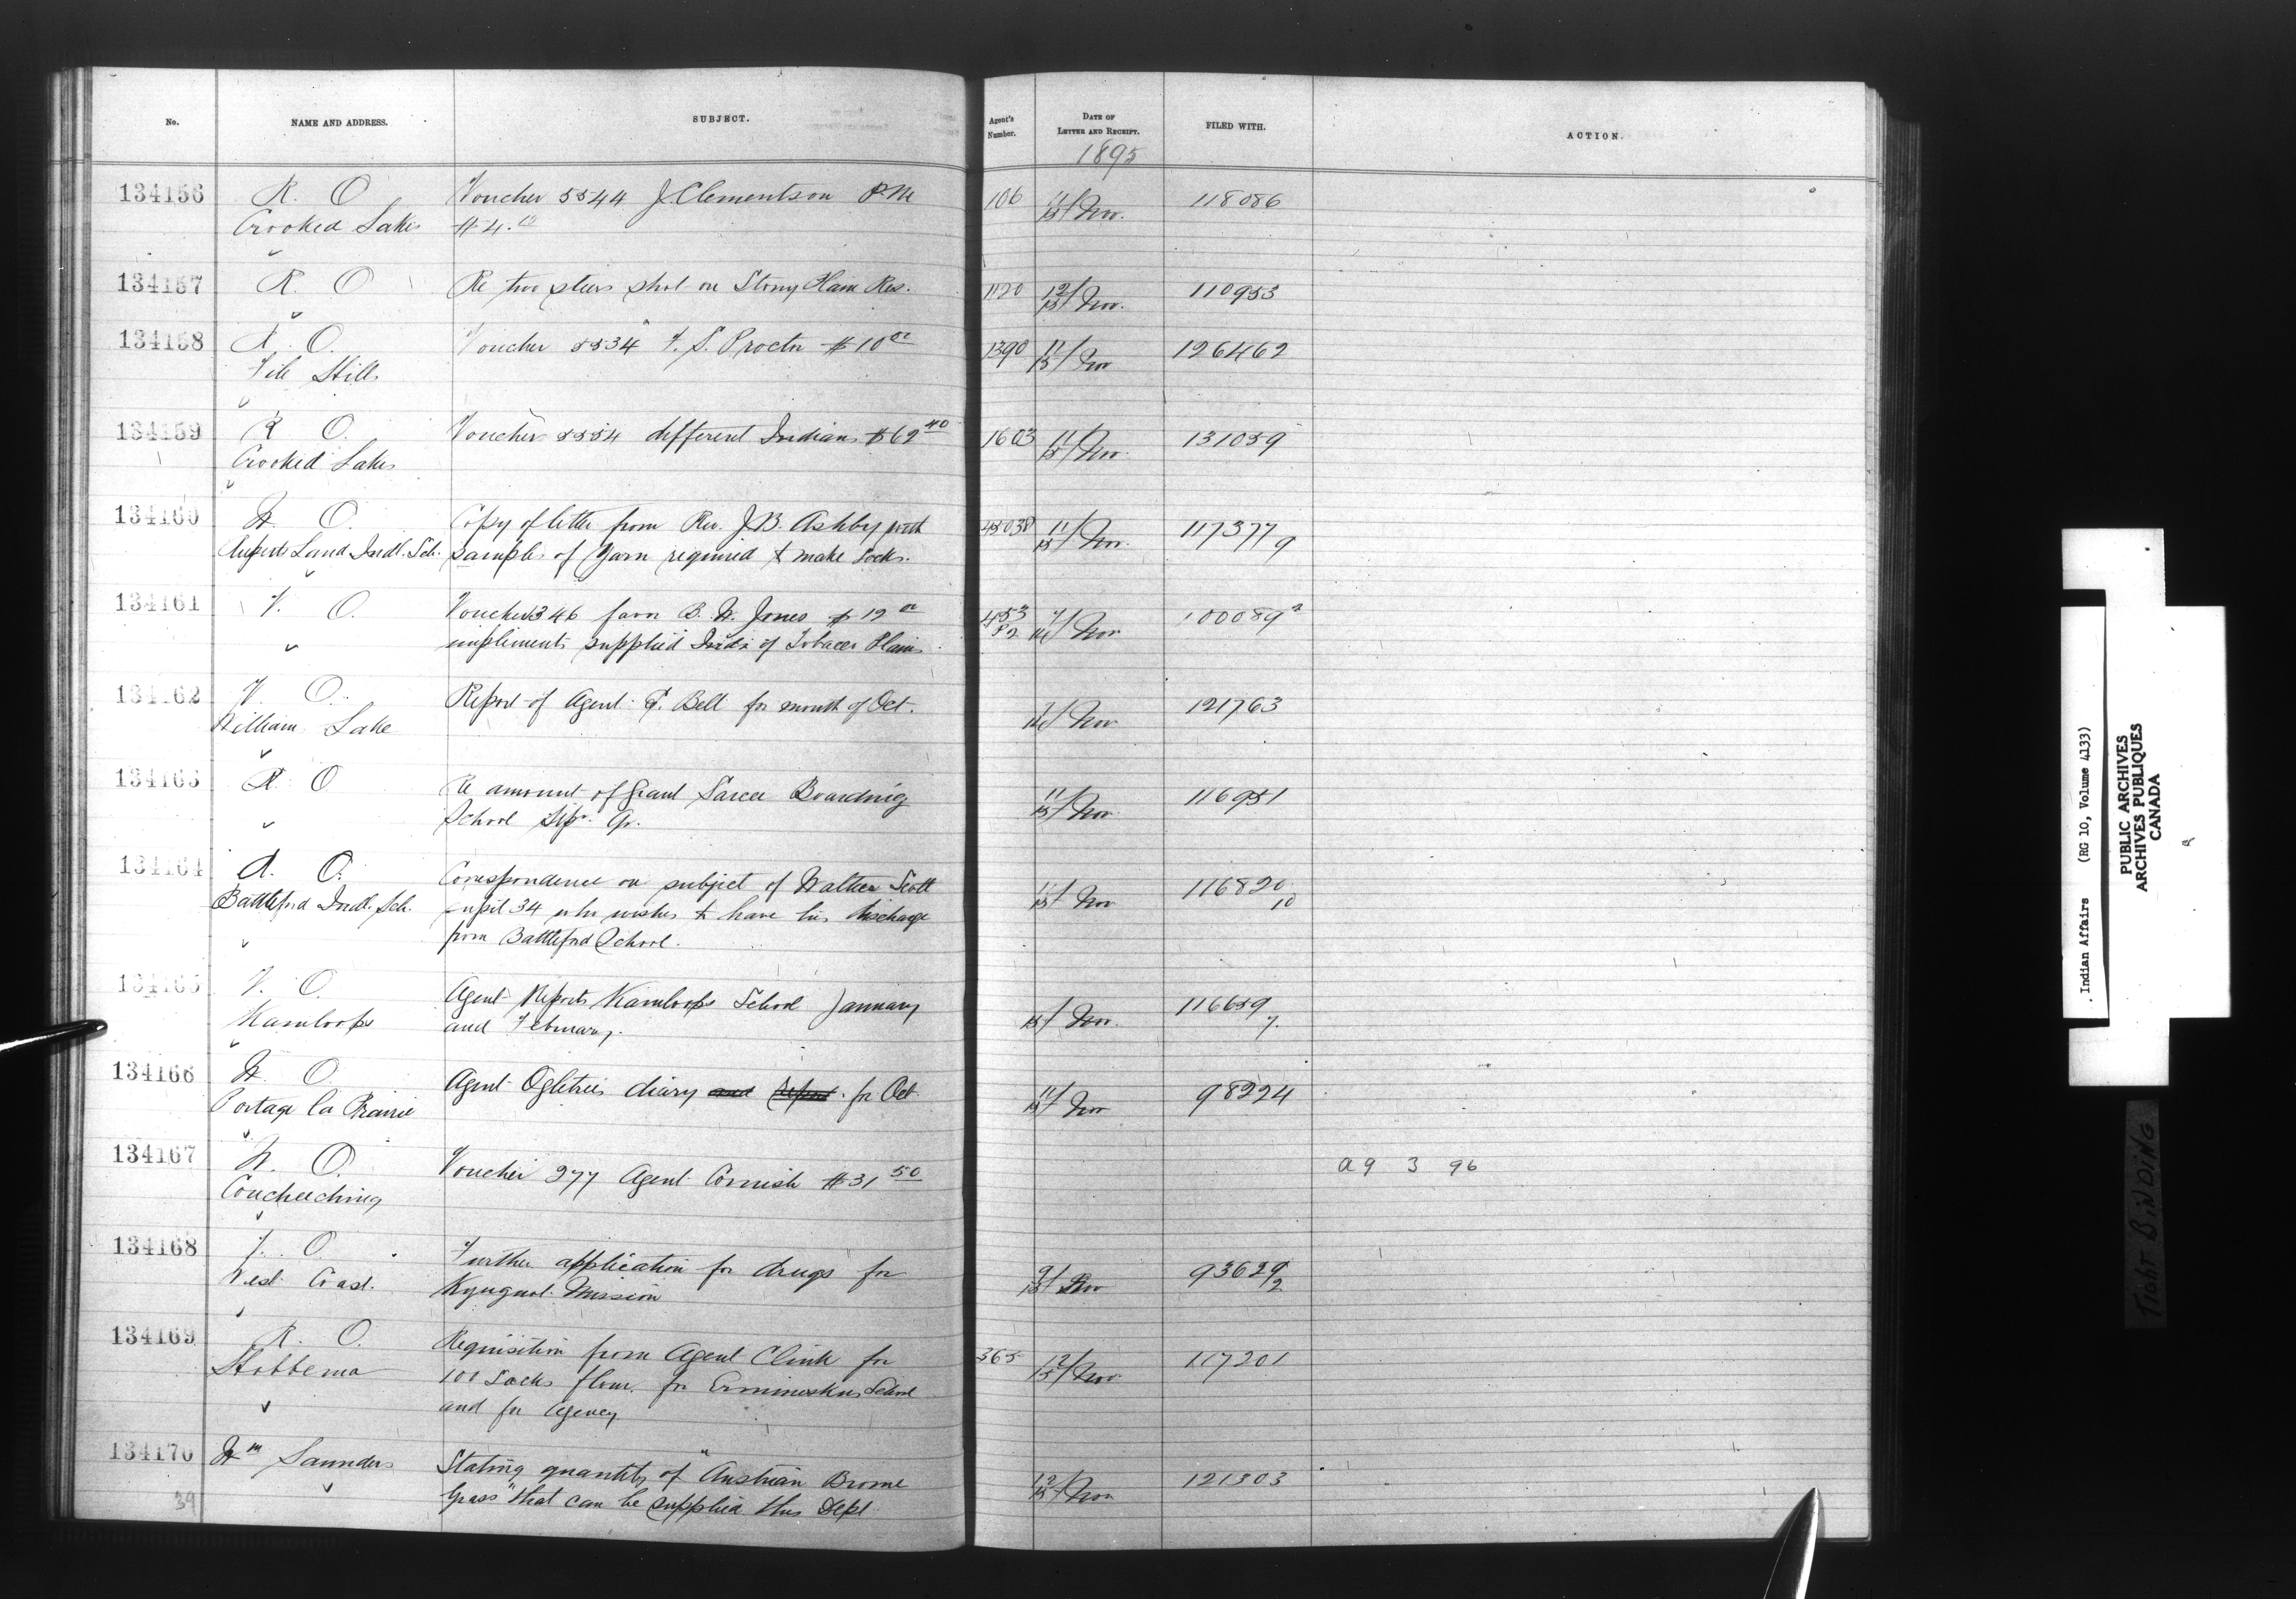 No. NAME AND ADDRESS. SUBJECT. Agent's Number. DATE OF LETTER AND RECEIPT. FILED WITH. ACTION.
1895
134156 R. O Voucher 5544 J. Clementson P.M. 106 11/15 Nov. 118086
Crooked Lakes $4.
134157 R. O Re two steers shot on Stony Plain Res. 1120 12/15 Nov. 110953
134158 R. O. Voucher 5534 F. S. Proctor $10 00 1390 11/15 Nov 126462
File Hills
134159 R O. Voucher 5554 different Indians $62 40 1603 11/15 Nov. 131059
Crooked Lakes
134160 W. O. Copy of letter from Rev. J.B. Ashby with 45038 11/15 Nov. 117377 9
Ruperts Land Indl. Sch. samples of Yarn required to make socks.
134161 V. O. Voucher 346 favor B. W. Jones $12 00 453 P2 Nov 100089 2
" implements supplied Inds. of Tobacco Plains
134162 V. O. Report of Agent Bell for month of Oct. Nov 121763
William Lake
134163 R. O Re amount of Grant Sarcee Boarding 11/15 Nov. 116951
School Sepr. Qr.
134164 R. O. Correspondence on subject of Walter Scott 11/15 Nov 116820 10
Battleford Indl. Sch. pupil 34 who wishes to have his discharge
from Battleford School.
134165 V. O. Agent Reports Kamloops School January Nov. 116659 7.
Kamloops and February.
134166 W. O. Agent Ogletrees diary and Report for Oct. 11/15 Nov 98224
Portage la Prairie
134167 W. O. Voucher 277 Agent Cornish $31 50 a9 3 96
Coucheeching
134168 V. O. Further application for drugs for 9/15 Nov 93629 2
West Coast. Kyuquot Mission
134169 R. O. Requisition from Agent Clink for 365 12/15 Nov. 117201
Hobbema 101 Sacks flour, for Ermineskins School
and for Agency
134170 Wm Saunders Stating quantity of "Austrian Brome 12/15 Nov 121303
Grass" that can be supplied this Dept.
39
Indian Affairs (RG 10, Volume 4133)
PUBLIC ARCHIVES
ARCHIVES PUBLIQUES
CANADA
TIGHT BINDING